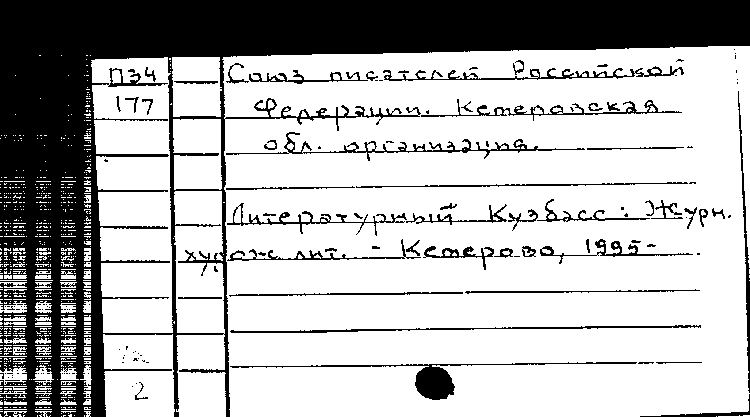 П34 Союз писателей Российской
177 Федерации. Кемеровская
обл. организация.
Литературный Кузбасс: Журн.
худож лит. - Кемерово, 1995-
2